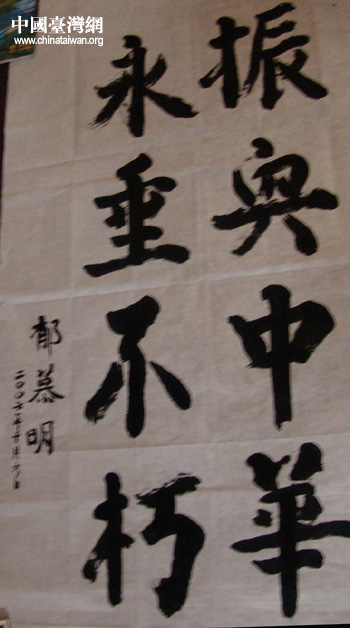 中國臺灣網
www.chinataiwan.org
振興中華
永垂不朽
郁慕明